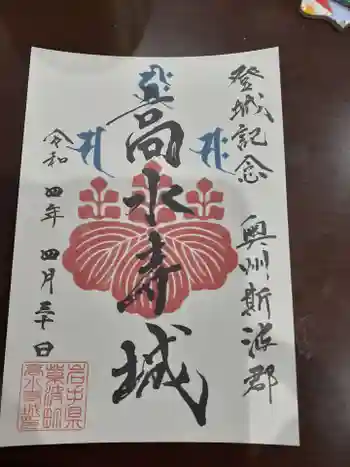 登城記念
奥州斯波郡
高水寿城
令和四年四月三十日
岩手県
紫波町